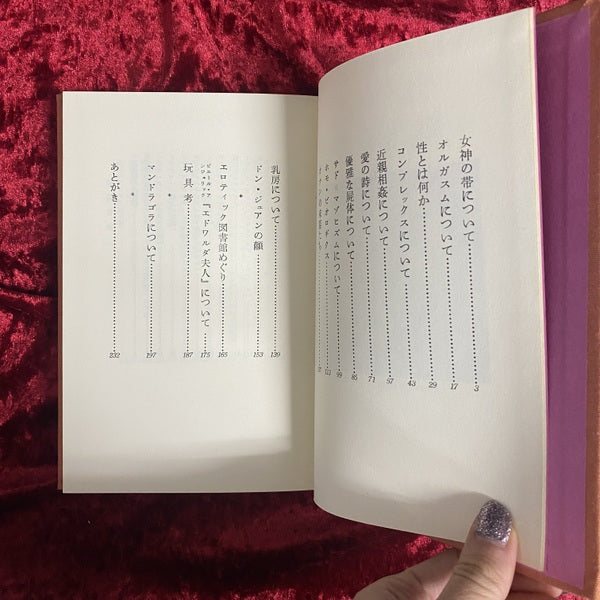 女神の帯について……3
オルガスムについて……17
性とは何か……29
コンプレックスについて……43
近親相姦について……57
愛の詩について……71
優雅な屍体について……85
サド・マゾヒズムについて……99
ホモ・ビオロギクス……113
オナンの末裔たち
乳房について……139
ドン・ジュアンの顔……153
エロティック図書館めぐり……165
ピエール・アンジェリック『エドワルダ夫人』について……175
玩具考……187
*
マンドラゴラについて……197
*
あとがき……232